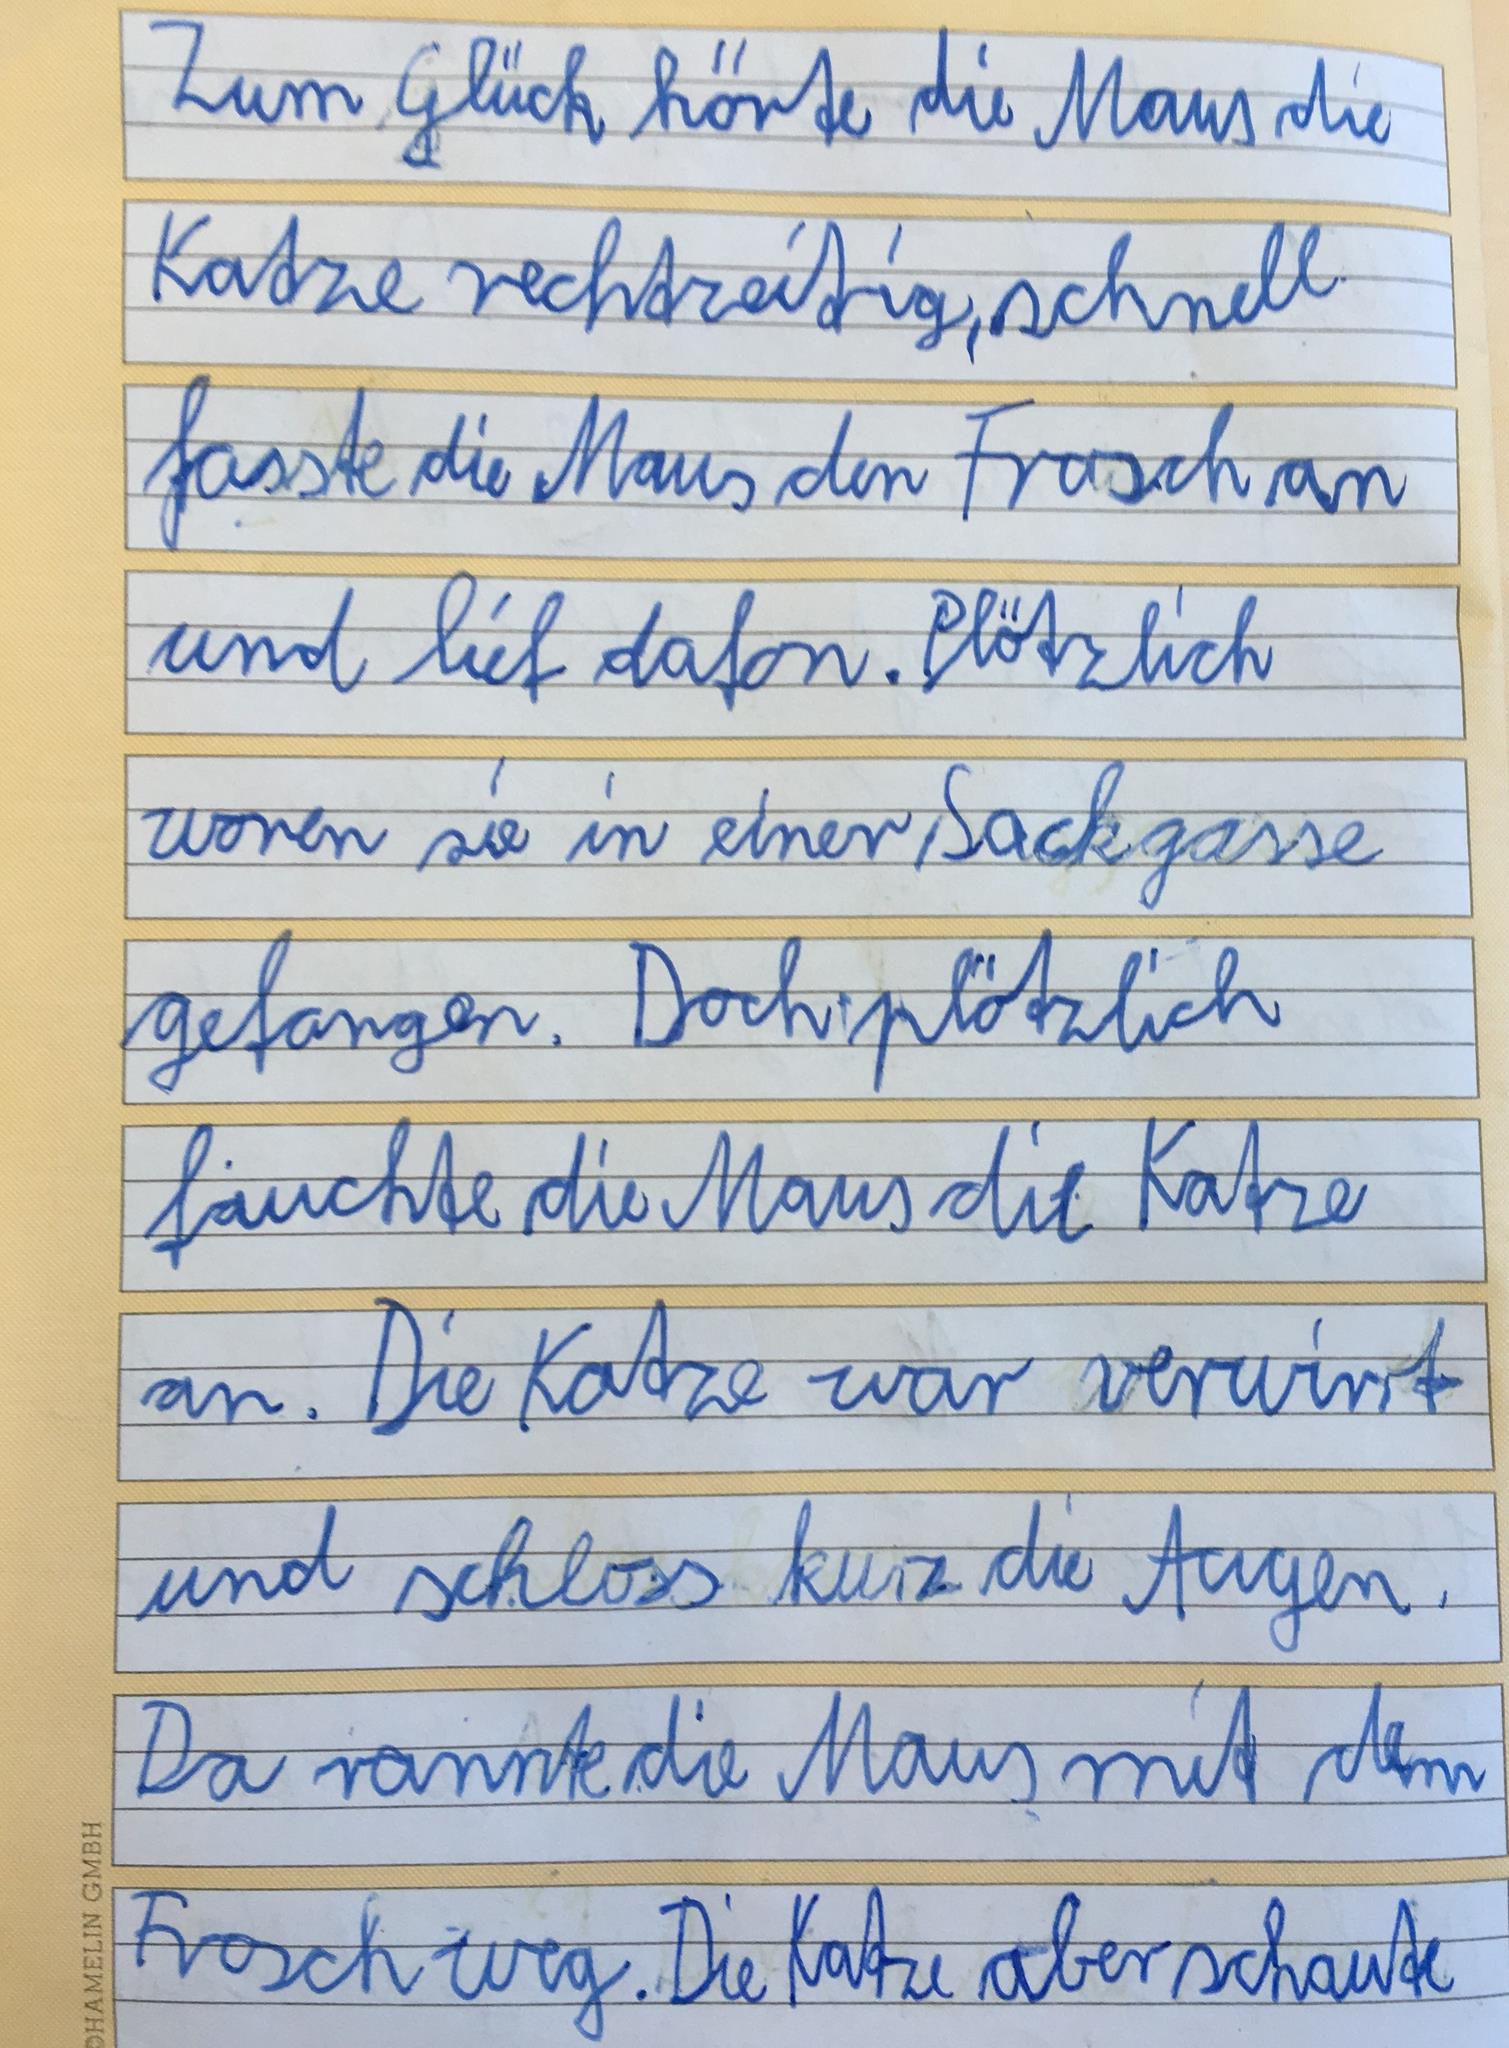 Zum Glück hörte die Maus die
Katze rechtzeitig, schnell
fasste die Maus den Frosch an
und lief dafon. Plötzlich
waren sie in einer Sackgasse
gefangen. Doch plötzlich
fauchte die Maus die Katze
an. Die Katze war verwirrt
und schloss kurz die Augen.
Da rannte die Maus mit dem
Frosch weg. Die Katze aber schaute
©HAMELIN GMBH